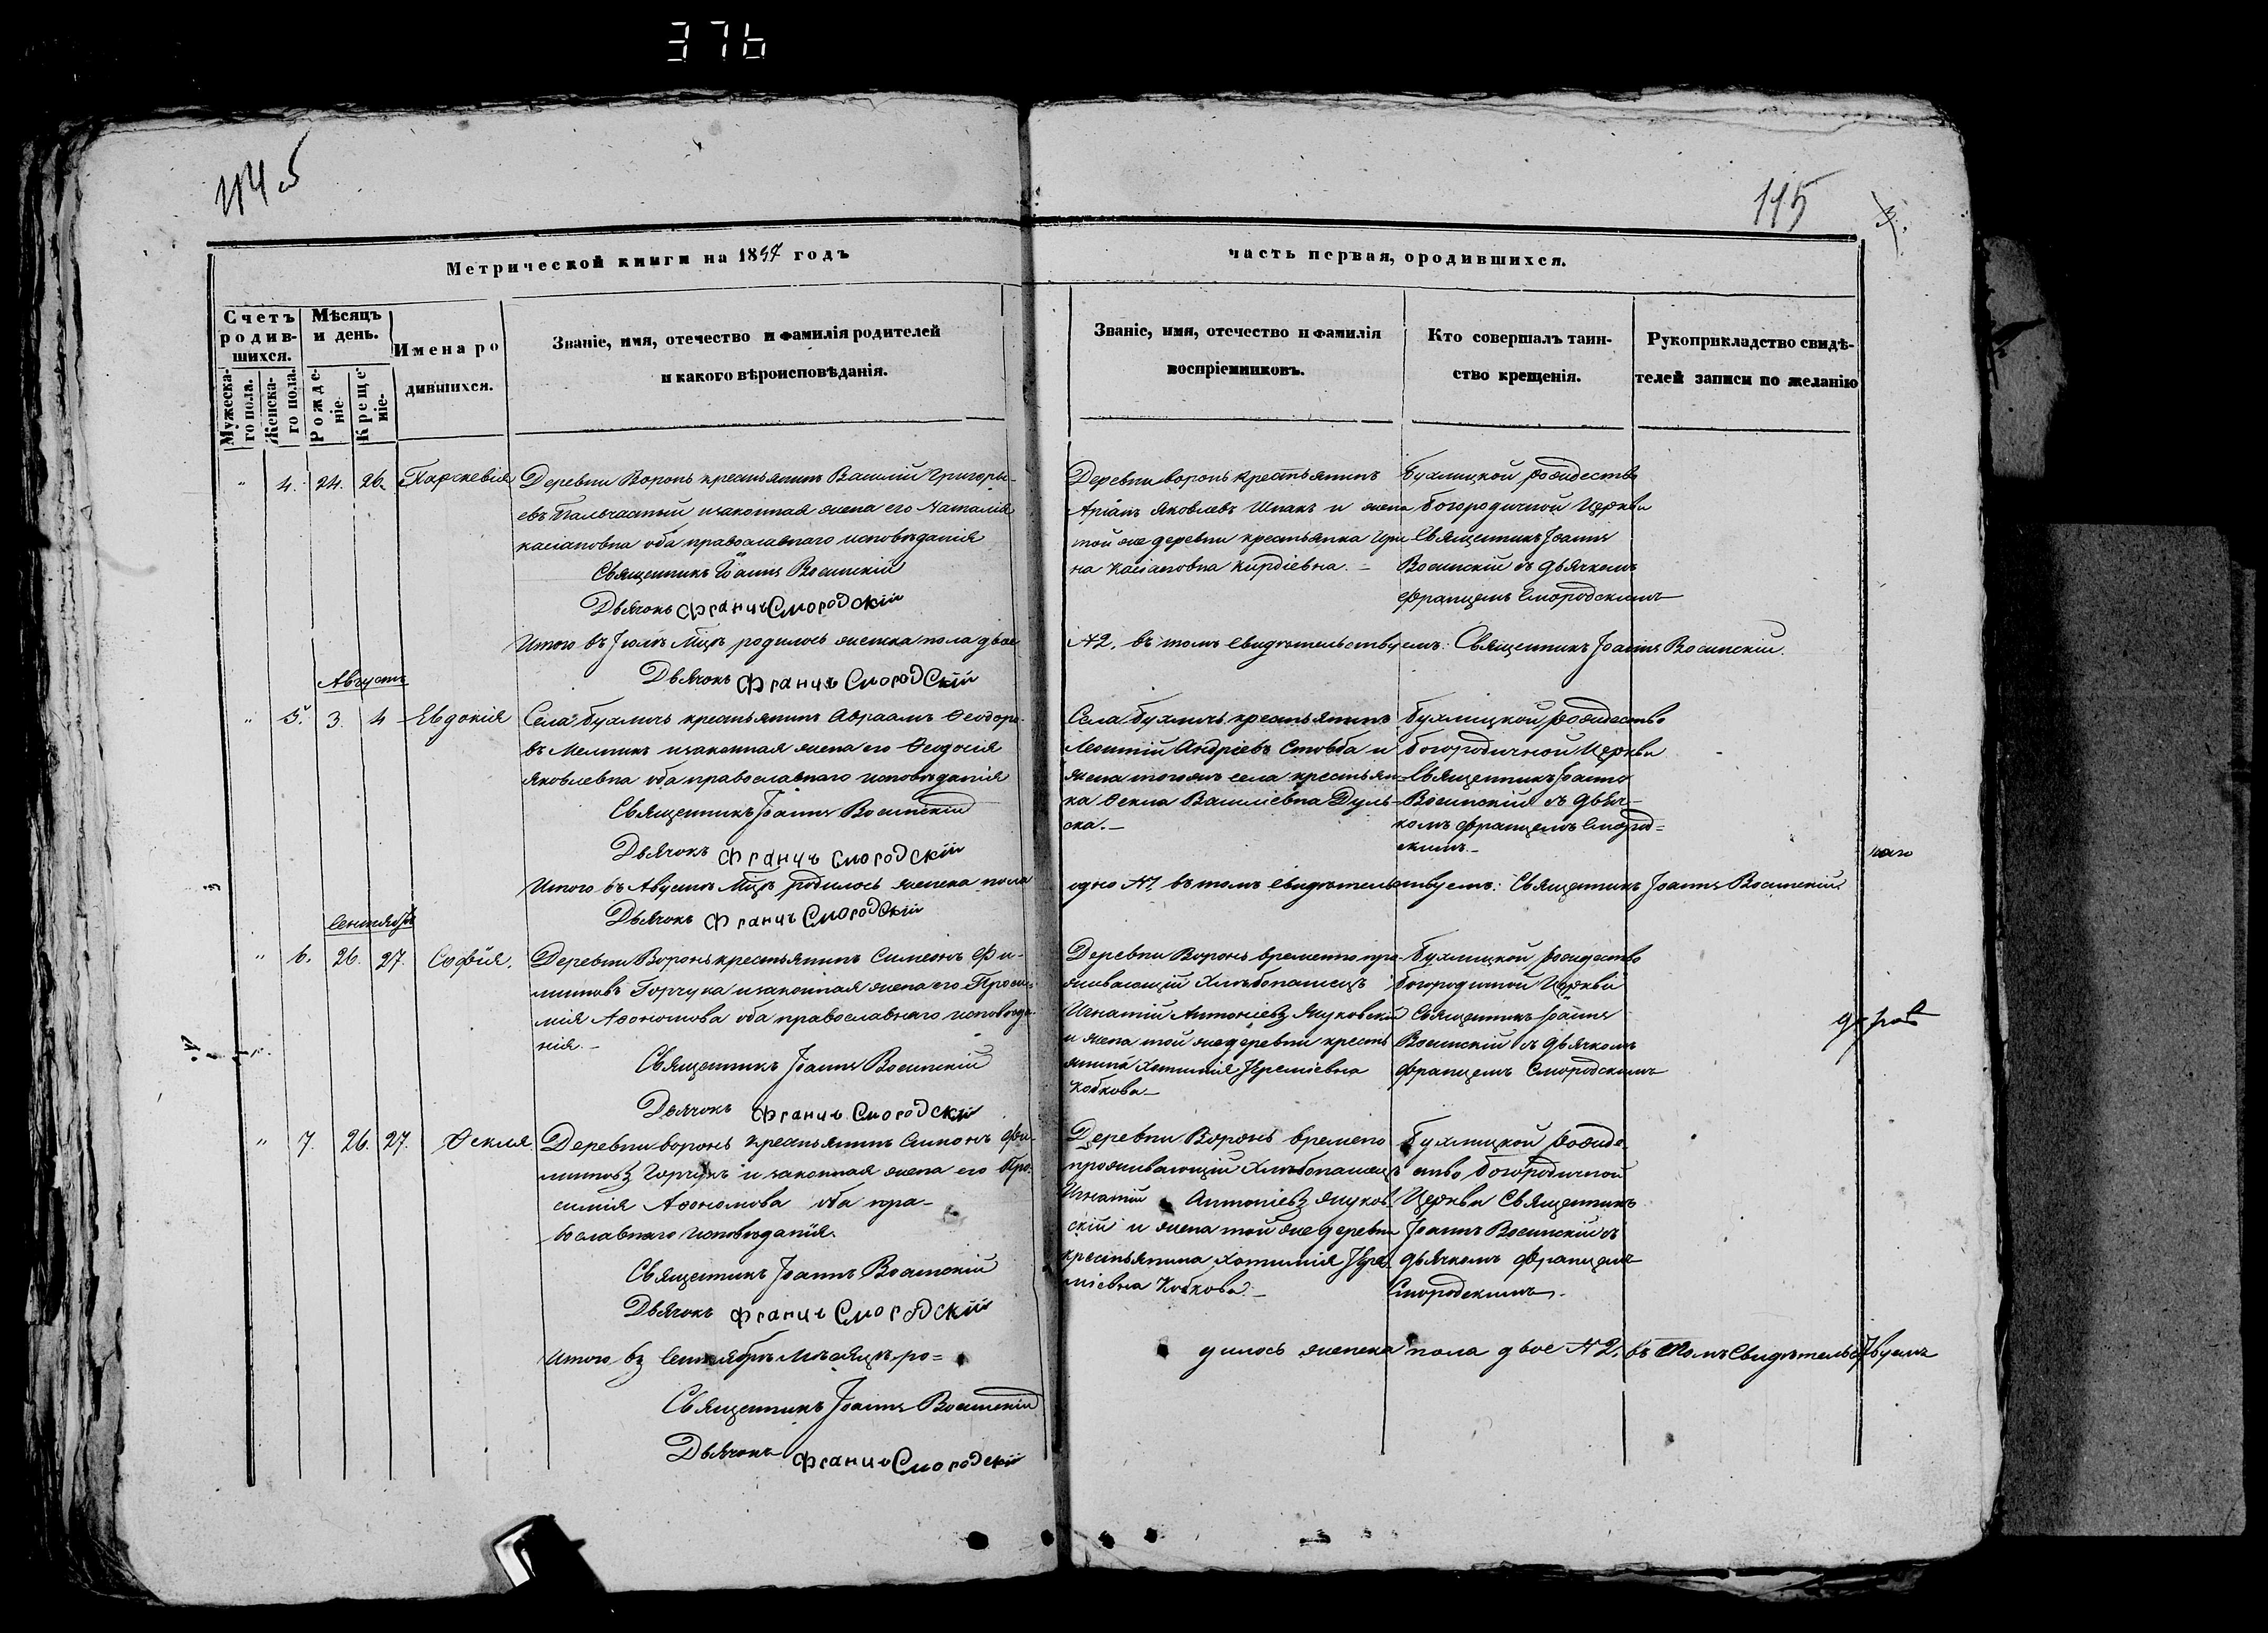 376
115
Метрической книги на 1857 годъ
часть первая, ородившихся.
Счетъ родив-шихся.
Мѣсяцъ и день.
Имена ро
дившихся.
Званіе, имя, отечество и фамилія родителей
и какого вѣроисповѣданія.
Званіе, имя, отечество и фамилія
воспріемниковъ.
Кто совершалъ таин-
ство крещенія.
Рукоприкладство свидѣ-
телей записи по желанію
Мужеска-го пола.
Женска-го пола.
Рожде-ніе
Креще-ніе.
" 4. 24. 26. Параскевія
Деревни Воронь крестьянинъ Василій Григорь-
евъ и законная жена его Наталія
касіановна оба православнаго исповѣданія
Священникъ Іоаннъ
Дьячокъ Францъ Смородскій
Деревни воронь крестьянинъ
Яковлевъ Шпакъ и жена
той же деревни крестьянка Ири
на Касіановна Кирдіевна. –
Бухлицкой рождество
богородичной Церкви
Священникъ Іоаннъ
съ дьячкомъ
францемъ Смородскимъ
Итого въ Іюлѣ Мцѣ родилось женска пола двое
№ 2, въ томъ свидѣтельствуемъ: Священникъ Іоаннъ
Дьячокъ Францъ Смородскій
Августъ
" 5. 3. 4 Евдокія
Села Бухличъ крестьянинъ Авраамъ Ѳеодоро
въ Мельникъ и законная жена его Ѳеодосія
Яковлевна оба православнаго исповѣданія
Священникъ Іоаннъ
Дьячокъ Францъ Смородскій
Села Бухличъ крестьянинъ
Леонтій Андріевъ Стовба и
жена тогожъ села крестьян-
ка Ѳекла Василіевна Дуль-
ска. –
Бухлицкой рождество
богородичной Церкви
Священникъ Іоаннъ
съ дьяч-
комъ францемъ Смород=
скимъ. –
Итого въ Августѣ Мцѣ родилось женска пола
одно № 1 въ томъ свидѣтельствуемъ: Священникъ Іоаннъ
Дьячокъ Францъ Смородскій
Сентябрь
" 6. 26. 27. Софія.
Деревни Воронь крестьянинъ Симеонъ Фи-
липовъ и законная жена его
оба православнаго исповѣда-
нія. –
Священникъ Іоаннъ
Дьячокъ Францъ Смородскій
Деревни Воронь временно про-
живающій Хлѣбопашецъ
Игнатій Антоніевъ Януковскій
и жена той же деревни кресть
янина
Кобкова –
Бухлицкой рождество
богородичной Церкви
Священникъ Іоаннъ
съ дьячкомъ
францемъ Смородскимъ
" 7. 26. 27. Ѳекля.
Деревни воронь крестьянинъ Симонъ фи-
липовъ и законная жена его
оба пра-
вославнаго исповѣданія.
Священникъ Іоаннъ
Дьячокъ Францъ Смородскій
Деревни Воронь времено
проживающій Хлѣбопашецъ
Игнатій Антоніевъ Януков-
скій и жена той же деревни
крестьянина
Кобкова. –
Бухлицкой рожде-
ство богородичной
Церкви Священникъ
Іоаннъ съ
дьячкомъ францемъ
Смородскимъ.
Итого въ Сентябрѣ Мѣсяцѣ ро=
дилось женска пола двое № 2, въ томъ Свидѣтельствуемъ
Священникъ Іоаннъ
Дьячокъ Францъ Смородскій